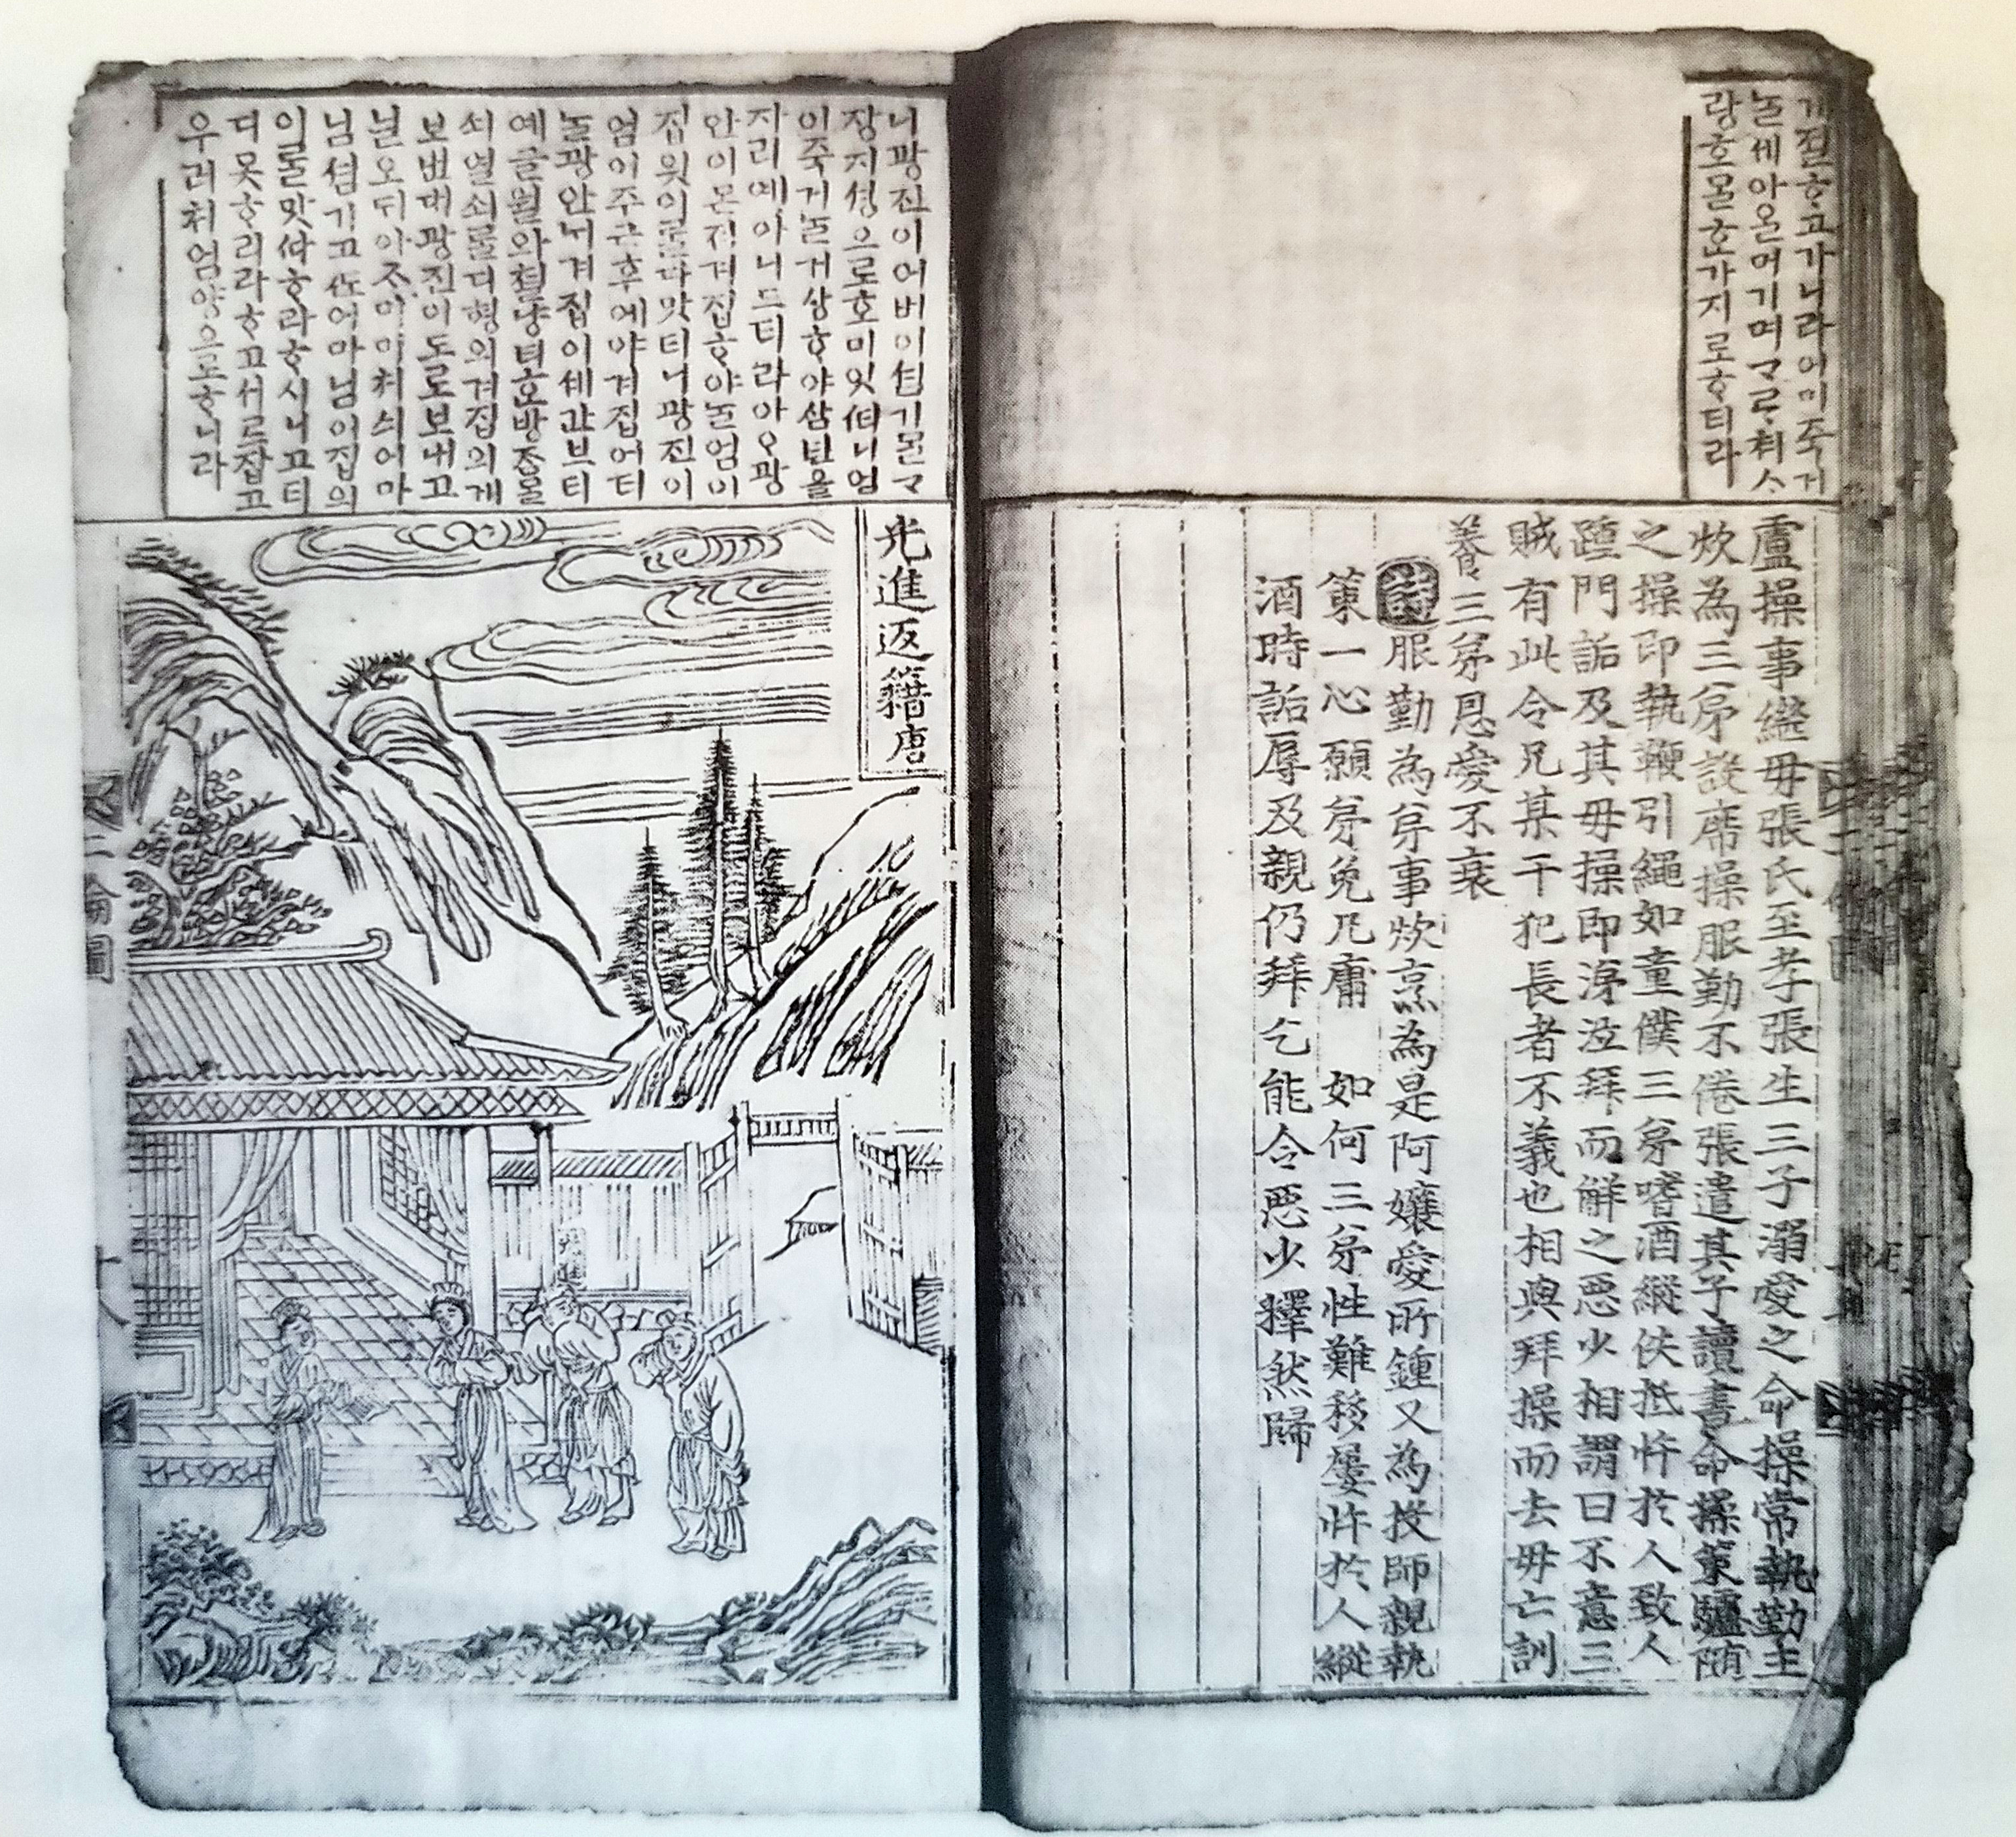 게졀ᄒᆞ고가니라어미죽거
늘세아ᄋᆞᆯ머기며ᄀᆞᄅᆞ쳐ᄉᆞ
랑호ᄆᆞᆯᄒᆞᆫ가지로ᄒᆞ더라
盧操事繼母張氏至孝張生三子溺愛之命操常執勤主
炊為三弟設席操服勤不倦張遣其子讀書命操策驢隨
之操即執鞭引繩如童僕三弟嗜酒縱佚抵忤於人致人
踵門詬及其母操即涕泣拜而解之惡少相謂曰不意三
賊有此令兄某干犯長者不義也相與拜操而去母亡訓
養三弟恩愛不衰
詩服勤為弟事炊烹為是阿孃愛所鍾又為投師親執
策一心願弟免凡庸 如何三弟性難移屢忤於人縱
酒時詬辱及親仍拜乞能令惡少釋然歸
니광진이어버이셤기ᄆᆞᆯᄀᆞ
장지셩으로호미잇더니엄
이죽거늘거상ᄒᆞ야삼년을
자리예아니드더라아ᄋᆞ광
안이몬져겨집ᄒᆞ야ᄂᆞᆯ엄미
집읫이ᄅᆞᆯ다맛더니광진이
엄이주근후에야겨집어더
ᄂᆞᆯ광안의겨집이세간브티
예글월와쳔량
쇠열쇠ᄅᆞᆯ다형의겨집의게
보낸대광진이도로보내고
닐오ᄃᆡ아ᄌᆞ미
님셤기고ᄯᅩ어마님이집의
이ᄅᆞᆯ맛ᄯᅡᄒᆞ라ᄒᆞ시니고티
디못ᄒᆞ리라ᄒᆞ고서르잡고
우러처엄양으로ᄒᆞ니라
光進返籍唐
光進
二倫圖
十八